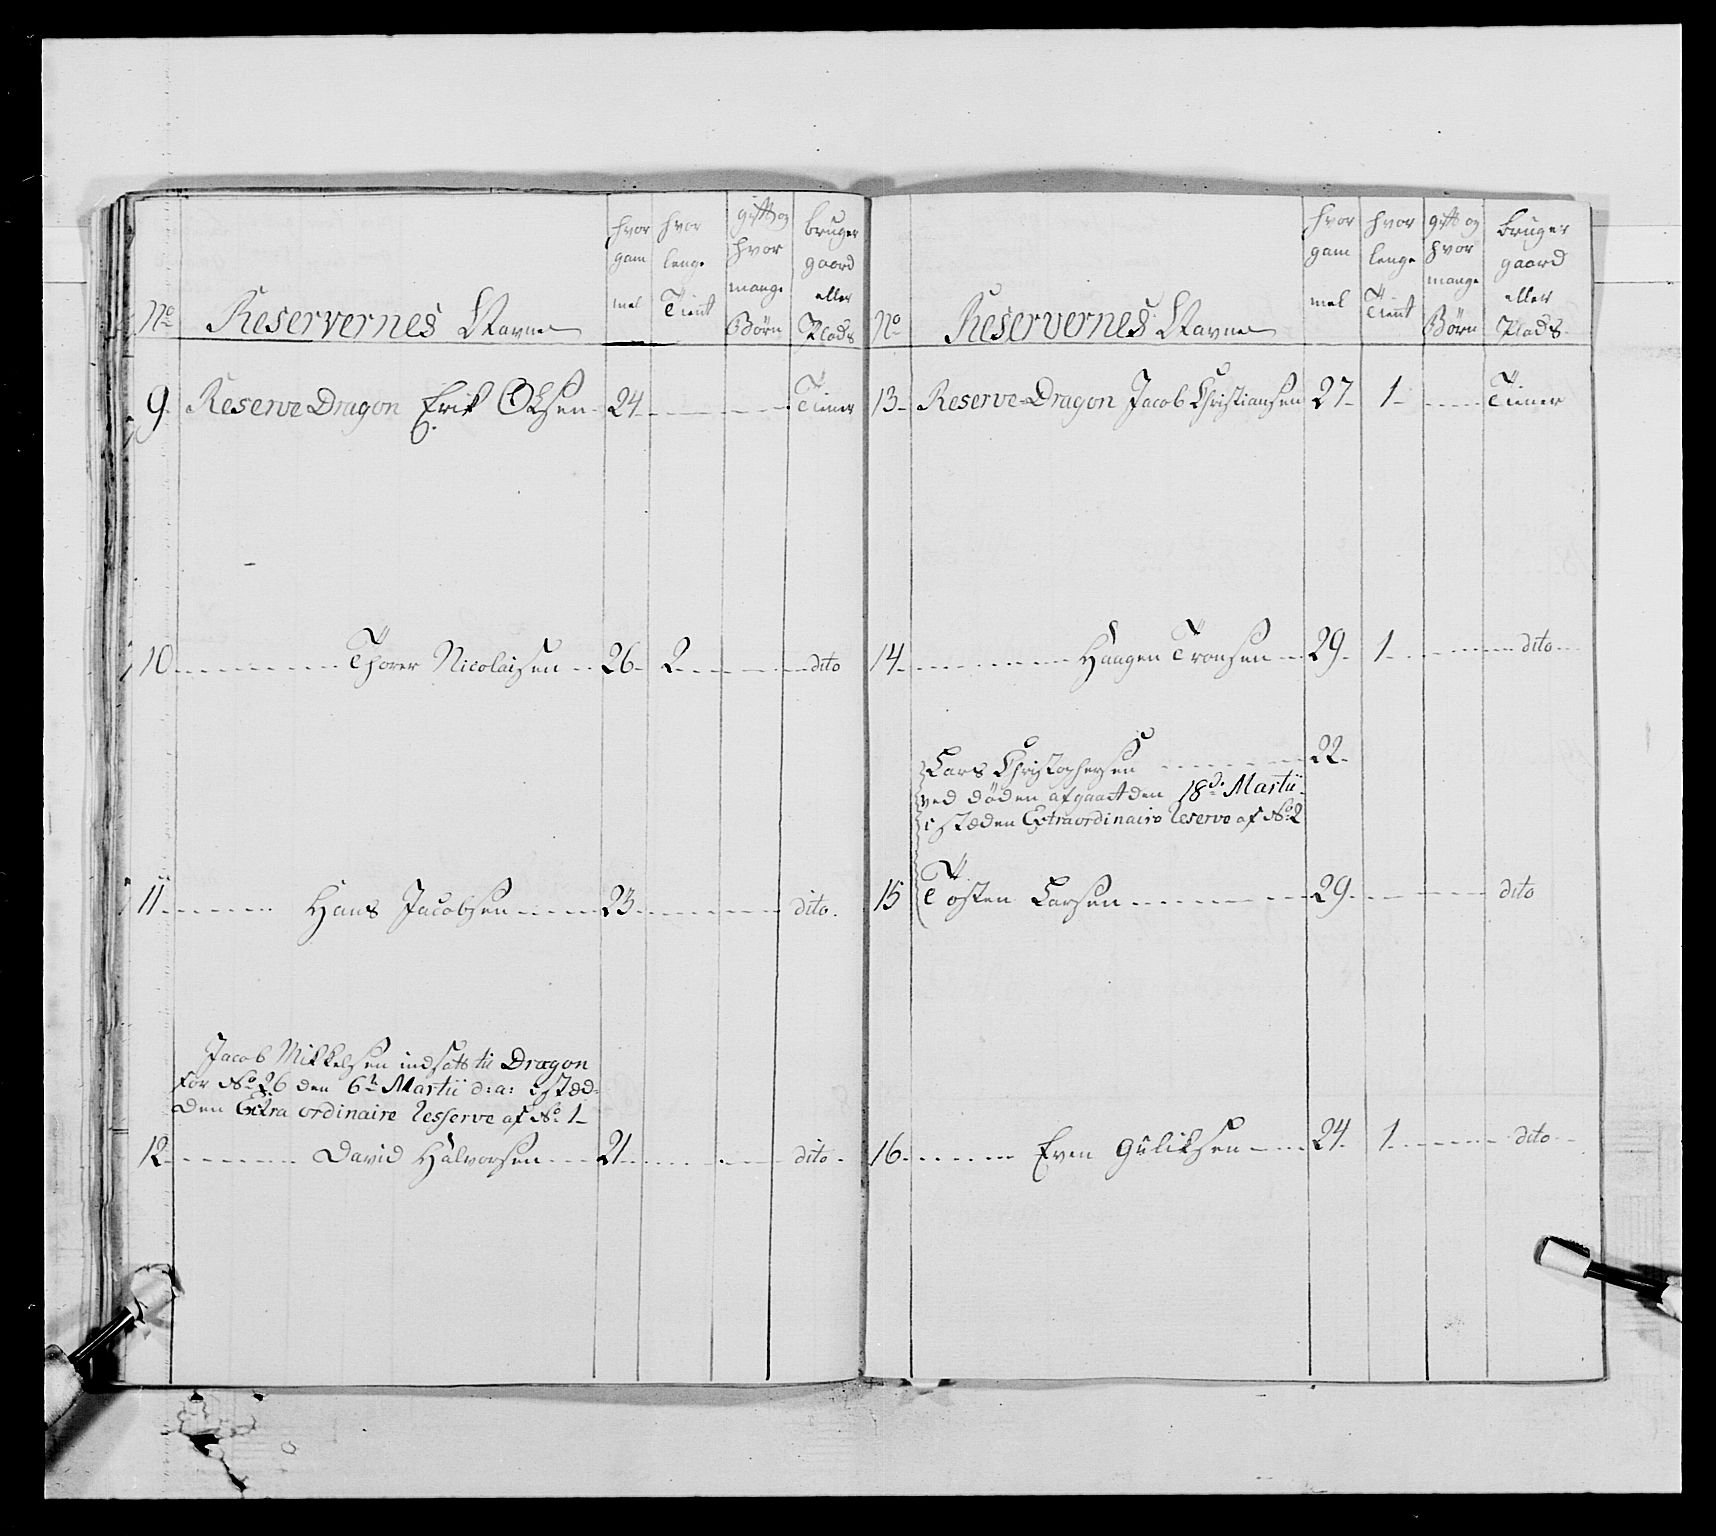 No Reservernes Navne hvor gam mel hvor lenge Tient gift og hvor mange Børn bruger gaard eller Plads
9 Reserve Dragon Erik Olsen 24 Tiener
10 Thorer Nicolaisen 26 2 dito
11 Hans Jacobsen 23 dito.
Jacob Mikkelsen indsatt til Dragon
for No 26 den 6te Martii d:a: i stæd-
den Extra ordinaire Resserve af No 1
12 David Halvorsen 21 dito
No Reservernes Navne hvor gam mel hvor lenge Tient gift og hvor mange Børn bruger gaard eller Plads
13 Reserve Dragon Jacob Christiansen 27 1 Tiener
14 Haagen Tronsen 29 1 dito
Lars Christophersen 22
ved døden afgaaet den 18de Martii
i stæden Extraordinaire Reserve af No 2
15 Tosten Larsen 29 dito
16 Even Guliksen 24 1 dito